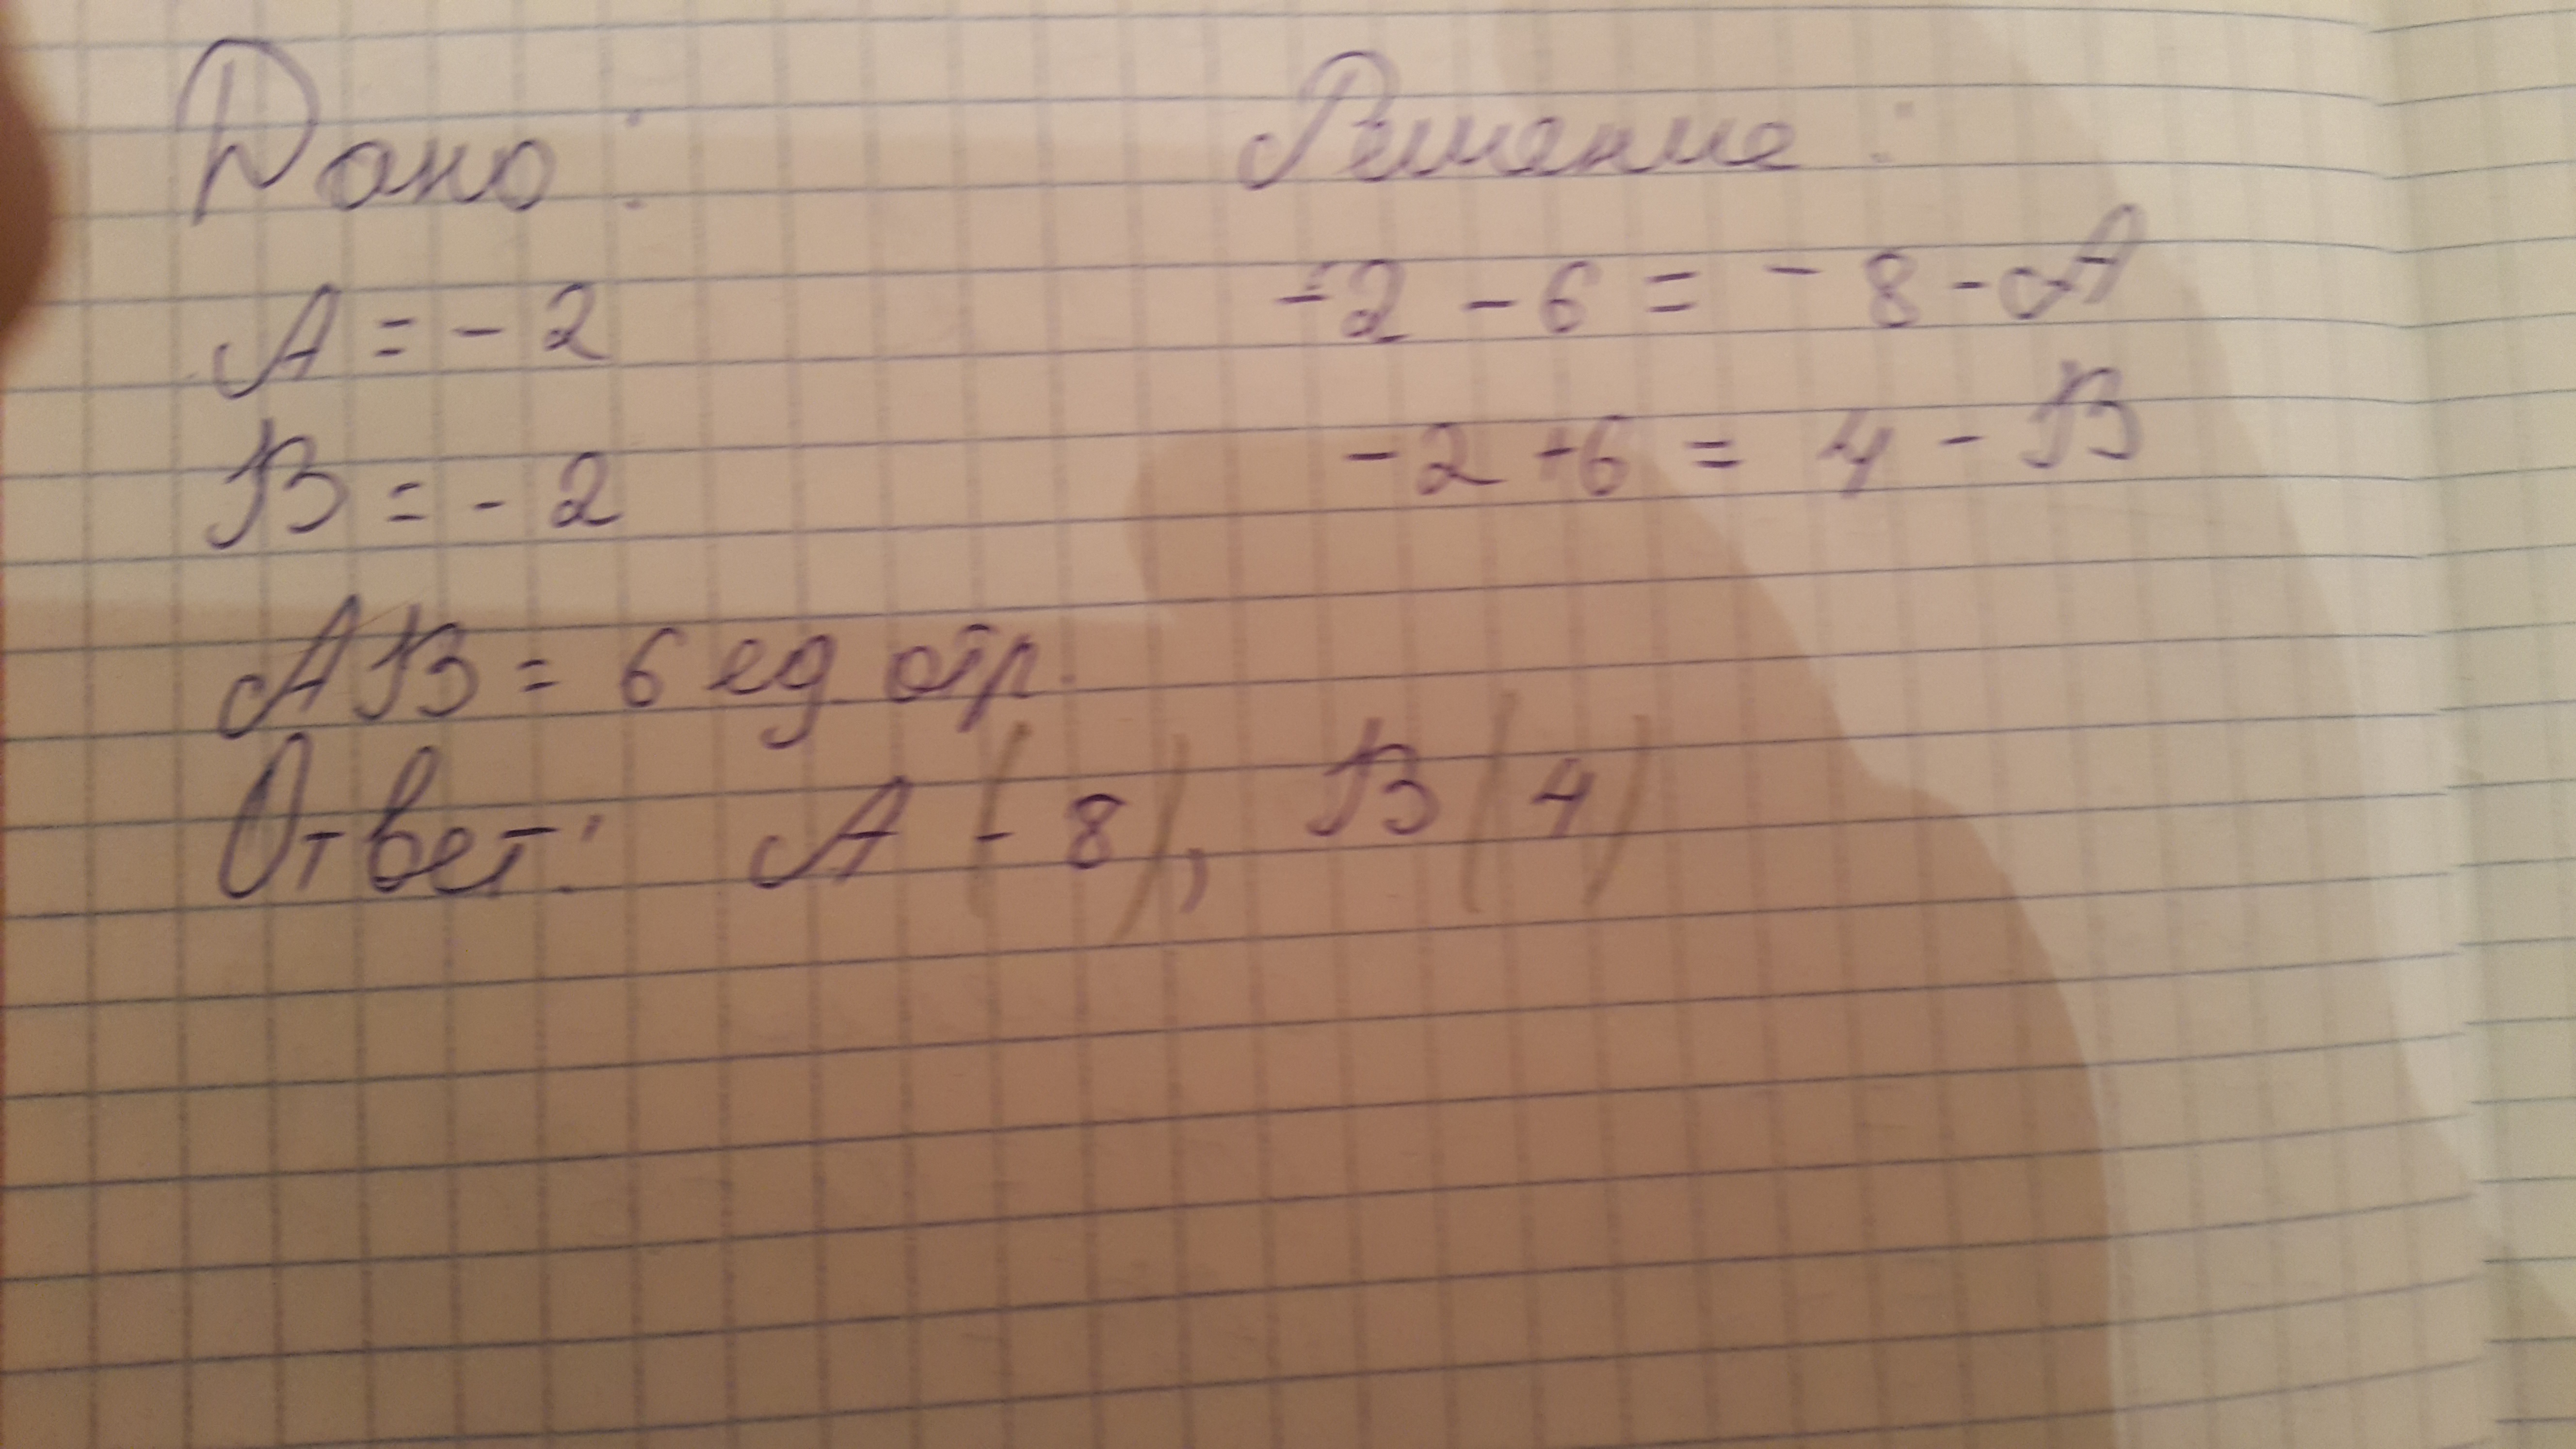 Дано:
A = - 2
B = - 2
AB = 6 ед отр.
Решение:
-2 - 6 = - 8 - A
-2 +6 = 4 - B
Ответ: A (- 8), B (4)